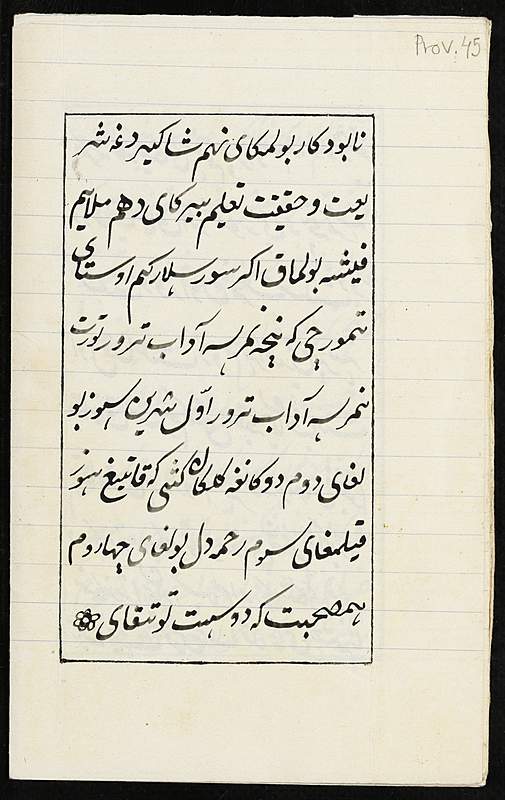 Prov. 45
نابود کار بولمکای نهم شاکیردغه شر
یعت و حقیقت تعلیم بیرکای دهم ملایم
فیشه بولماق اکر سورسلار کیم اوستای
تیمورچی که نیچه نمرسه آداب تیرور تورت
نمرسه آداب تیرور اول شیرین سوز بو
لغای دوم دوکانغه کلکان کشی که قاتیغ سوز
قیلمغای سوم رحمدل بولغای چهاروم
هم صحبت که دوست توتقای